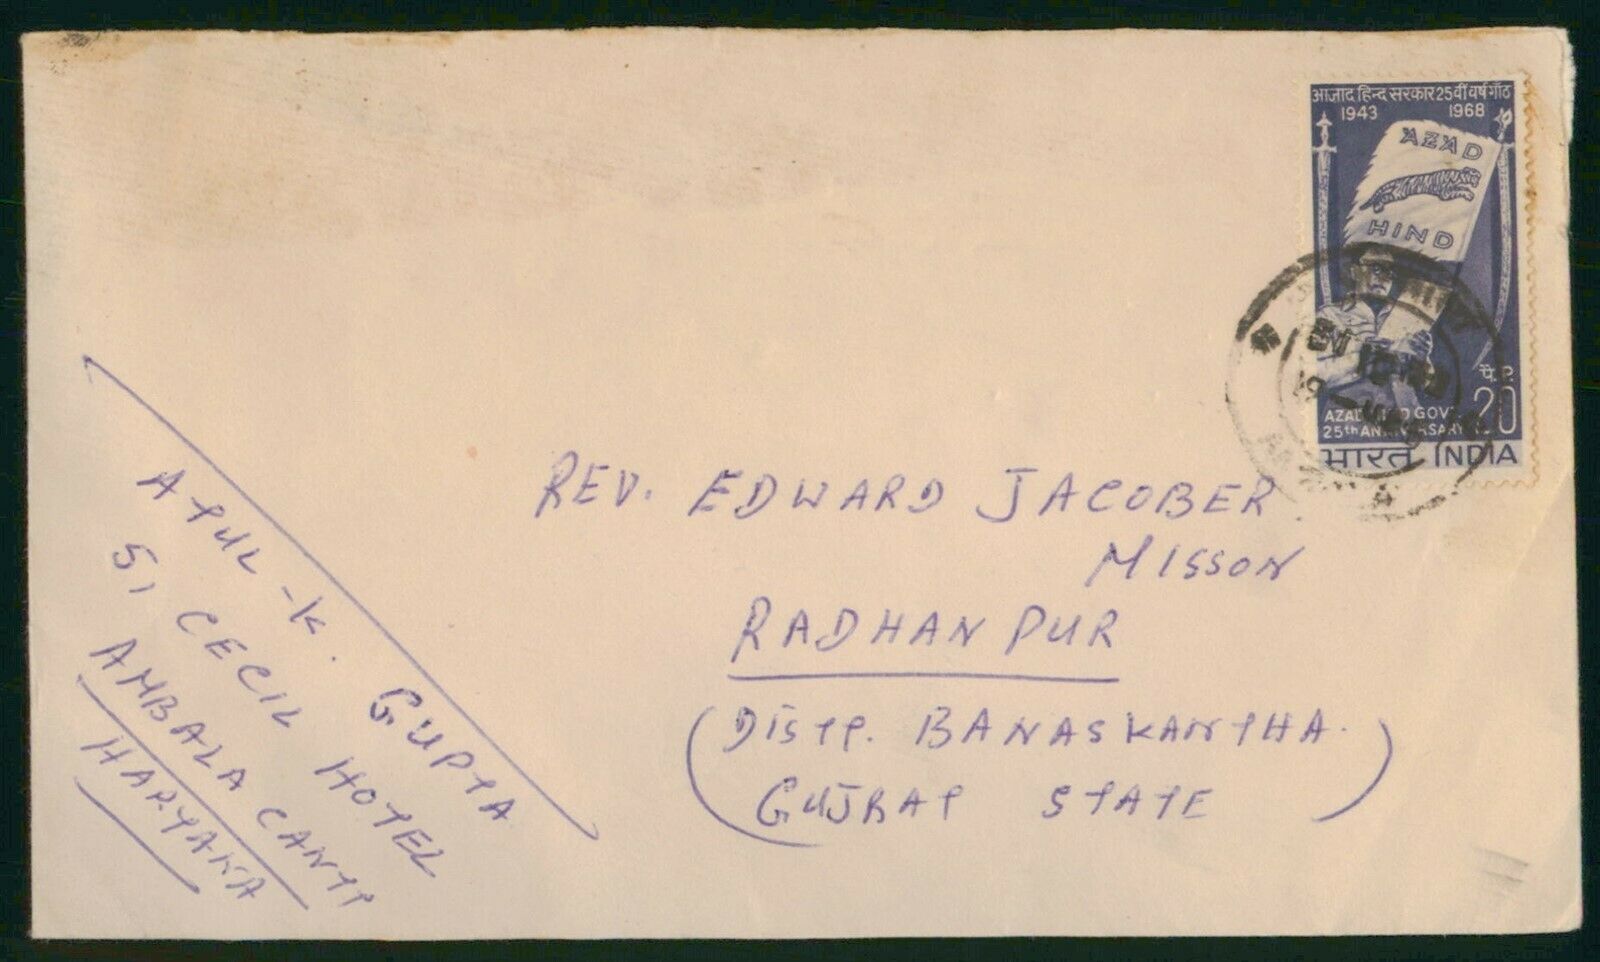 आज़ाद हिन्द सरकार 25वीं वर्षगाँठ
1943 1968
AZAD
HIND
पै. P.
20
भारत INDIA
REV. EDWARD JACOBER.
MISSON
RADHANPUR
(DISTT. BANASKANTHA.
GUJRAT STATE)
ATUL-K. GUPTA
51 CECIL HOTEL
AMBALA CANTT
HARYANA